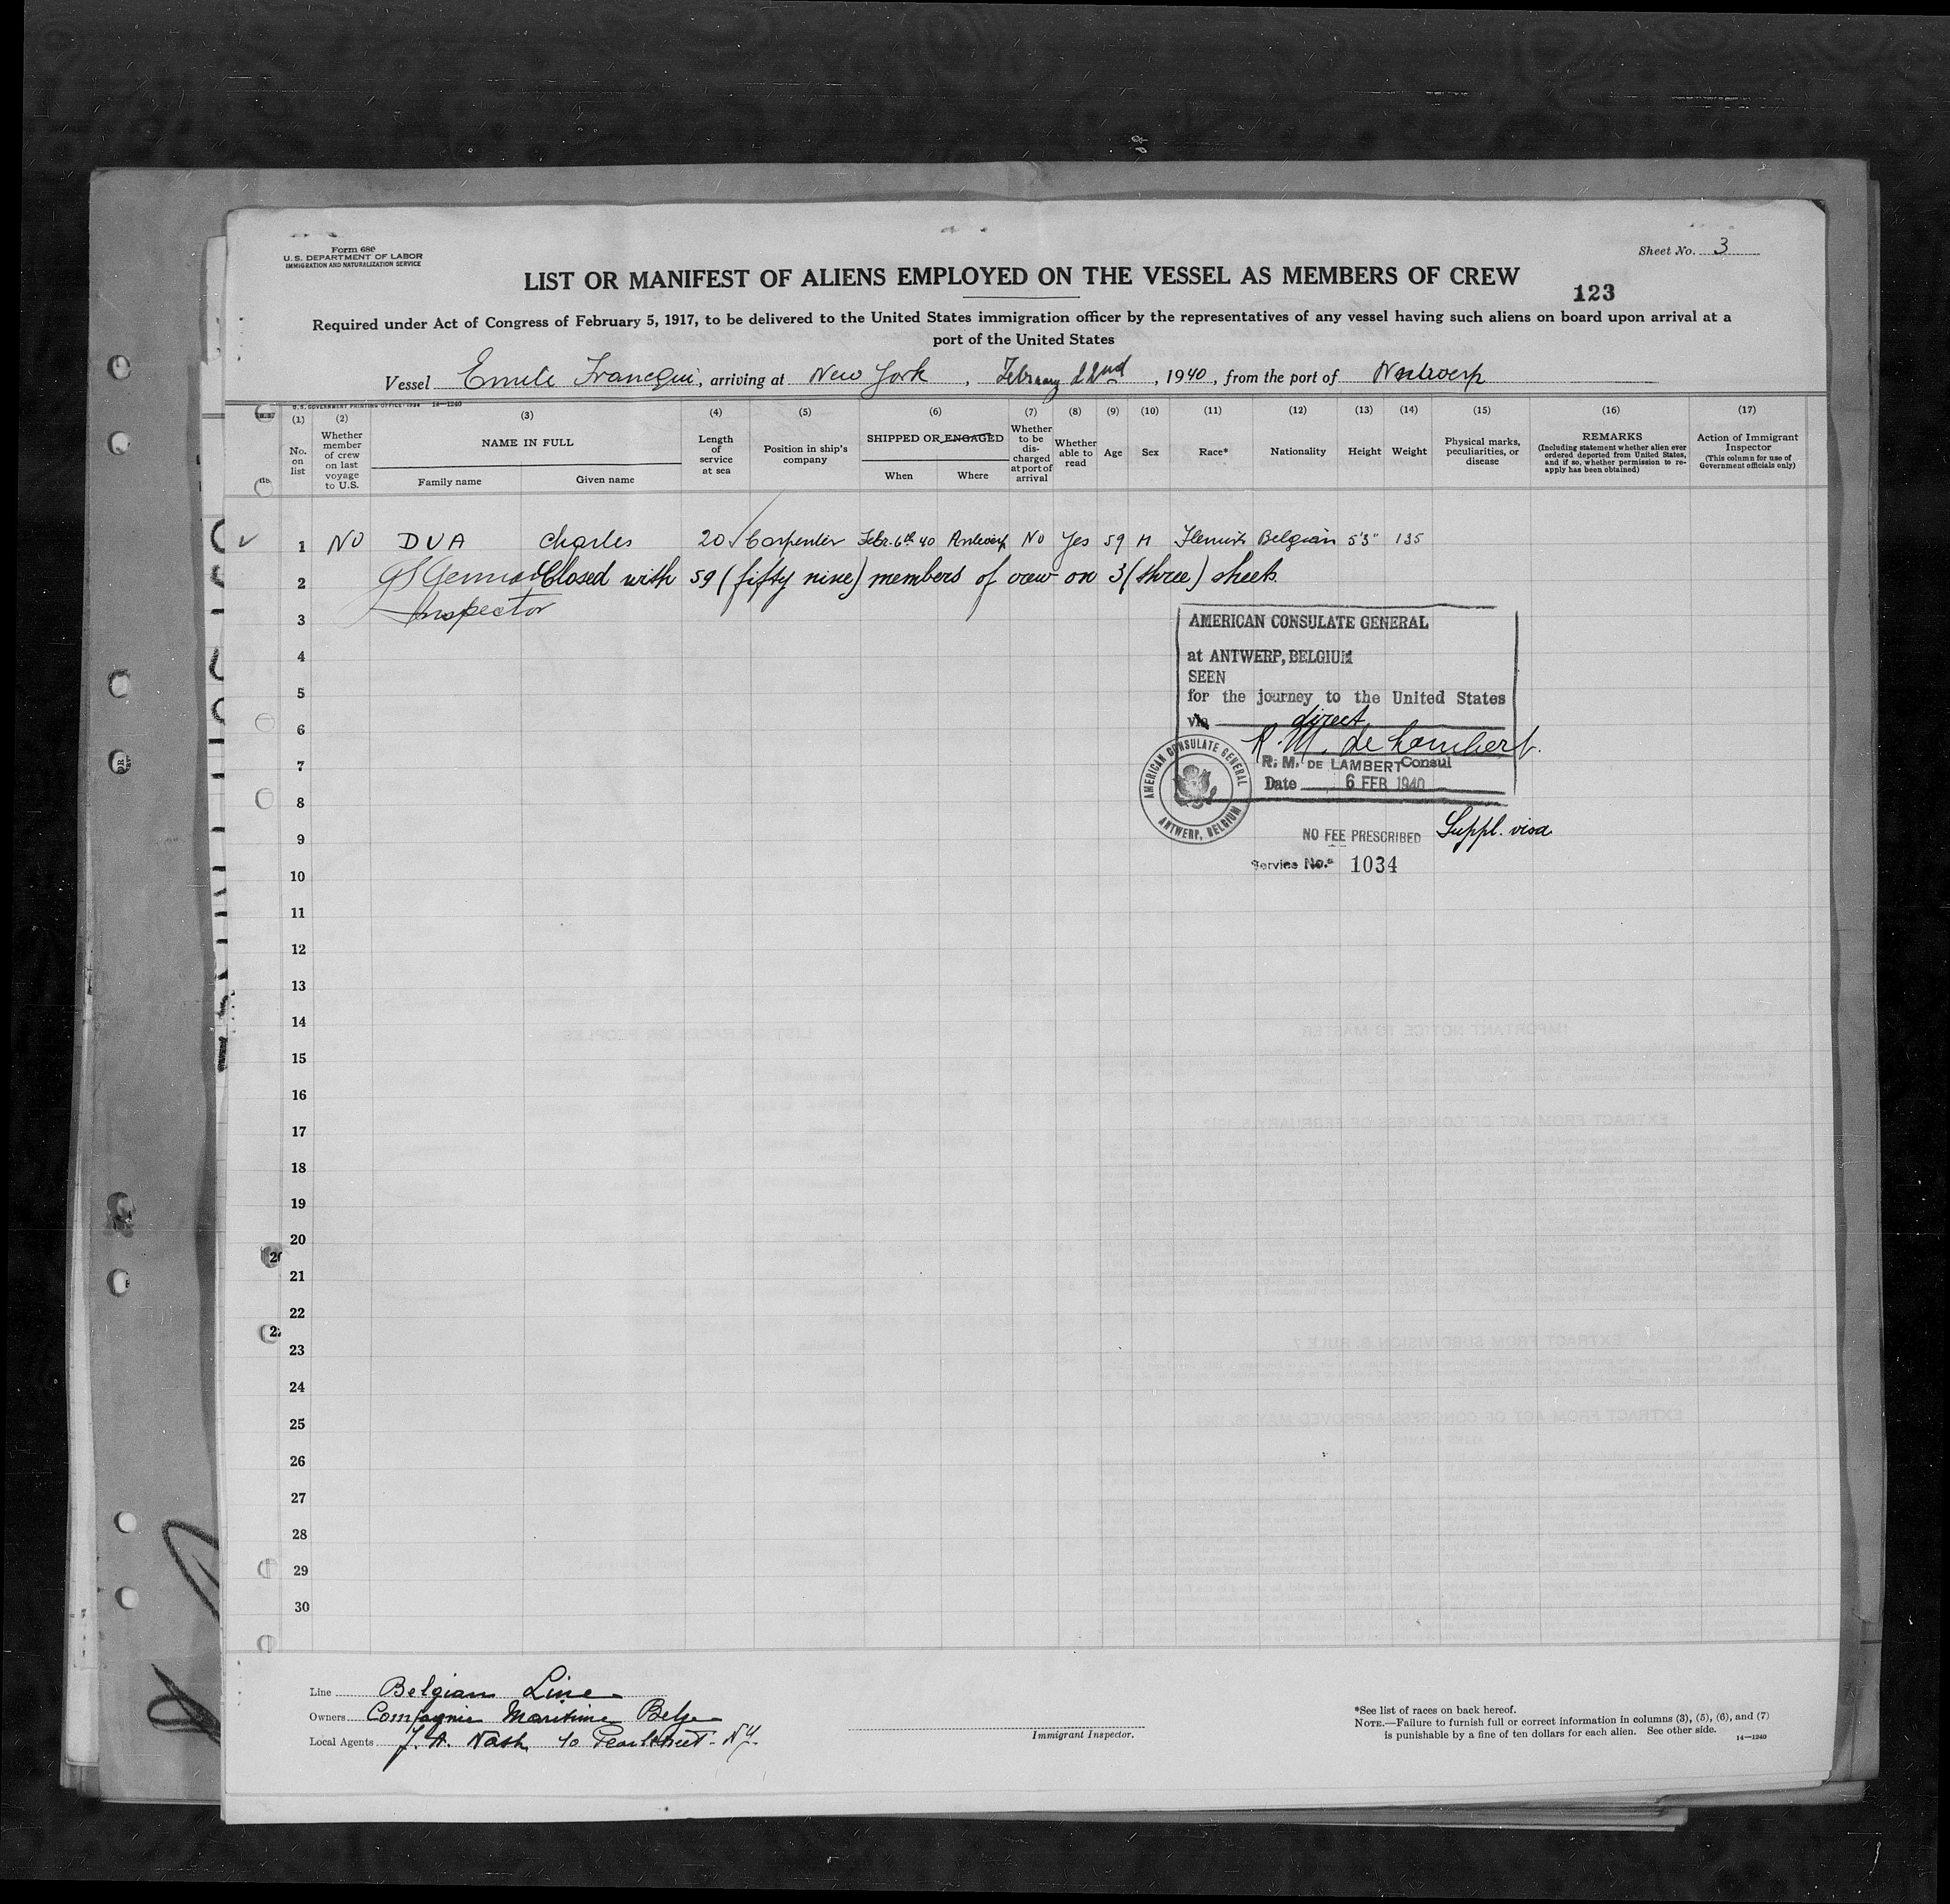 Form 680
U. S. DEPARTMENT OF LABOR
IMMIGRATION AND NATURALIZATION SERVICE
Sheet No. 3
LIST OR MANIFEST OF ALIENS EMPLOYED ON THE VESSEL AS MEMBERS OF CREW
123
Required under Act of Congress of February 5, 1917, to be delivered to the United States immigration officer by the representatives of any vessel having such aliens on board upon arrival at a
port of the United States
Vessel Emile Francqui, arriving at New York, February 22nd, 1940, from the port of Antwerp
U. S. GOVERNMENT PRINTING OFFICE: 1934 14—1240
(1) (2) (3) (4) (5) (6) (7) (8) (9) (10) (11) (12) (13) (14) (15) (16) (17)
No. on list
Whether member of crew on last voyage to U.S.
NAME IN FULL
Family name
Given name
Length of service at sea
Position in ship's company
SHIPPED OR ENGAGED
When
Where
Whether to be discharged at port of arrival
Whether able to read
Age
Sex
Race*
Nationality
Height
Weight
Physical marks, peculiarities, or disease
REMARKS
(Including statement whether alien ever ordered deported from United States, and if so, whether permission to reapply has been obtained)
Action of Immigrant Inspector
(This column for use of Government officials only)
1 No DUA Charles 20 Carpenter Febr. 6th 40 Antwerp No Yes 59 M Flemish Belgian 5'3" 135
2 Closed with 59 (fifty nine) members of crew on 3 (three) sheets.
3 Inspector
4
5
6
7
8
9
10
11
12
13
14
15
16
17
18
19
20
21
22
23
24
25
26
27
28
29
30
AMERICAN CONSULATE GENERAL
at ANTWERP, BELGIUM
SEEN
for the journey to the United States
via direct
R. M. de Lambert
R. M. DE LAMBERT Consul
Date 6 FEB 1940
AMERICAN CONSULATE GENERAL
ANTWERP, BELGIUM
NO FEE PRESCRIBED Suppl. visa
Service No. 1034
Line Belgian Line
Owners Compagnie Maritime Belge
Local Agents J. A. Nash 40 Pearlstreet - NY.
Immigrant Inspector.
*See list of races on back hereof.
NOTE.—Failure to furnish full or correct information in columns (3), (5), (6), and (7)
is punishable by a fine of ten dollars for each alien. See other side.
14—1240